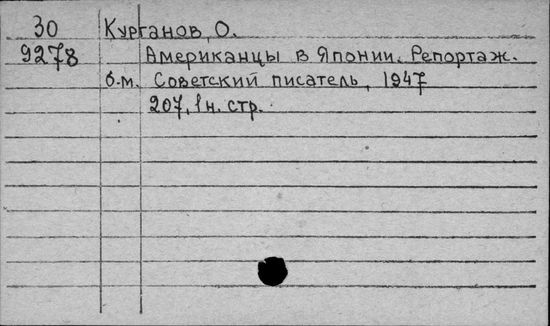 30 Курганов, О.
9278 Американцы в Японии. Репортаж.
б.м. Советский писатель, 1947
207, 1 н. стр.